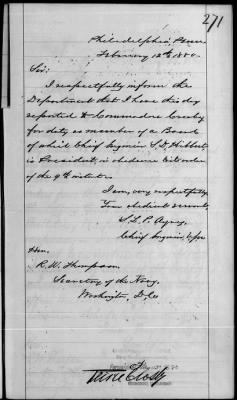 271
Philadelphia, Penn.
February 12th 1880.
Sir:
I respectfully inform the
Department that I have this day
reported to Commodore
for duty as member of a Board
of which Chief Engineer S.D. Hibbert
is President, in obedience to order
of the 9th instant.
I am, very respectfully,
Your obedient servant,
S. L. P. Ayres,
Chief Engineer,
Hon.
R. W. Thompson,
Secretary of the Navy,
Washington, D.C.